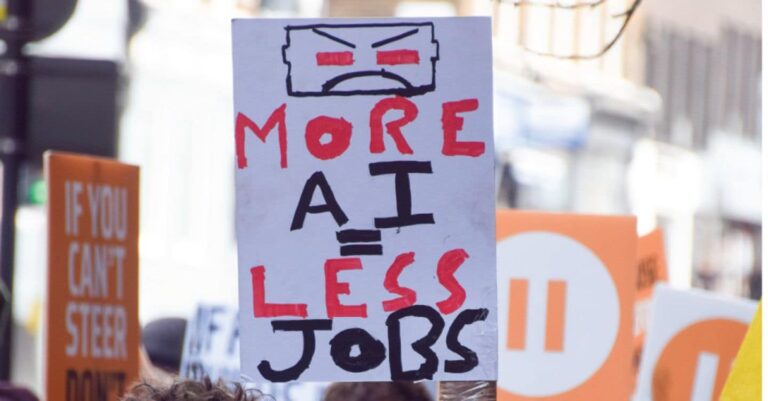 MORE
AI
=
LESS
JOBS
IF YOU
CAN'T
STEER
DON'T
IF A